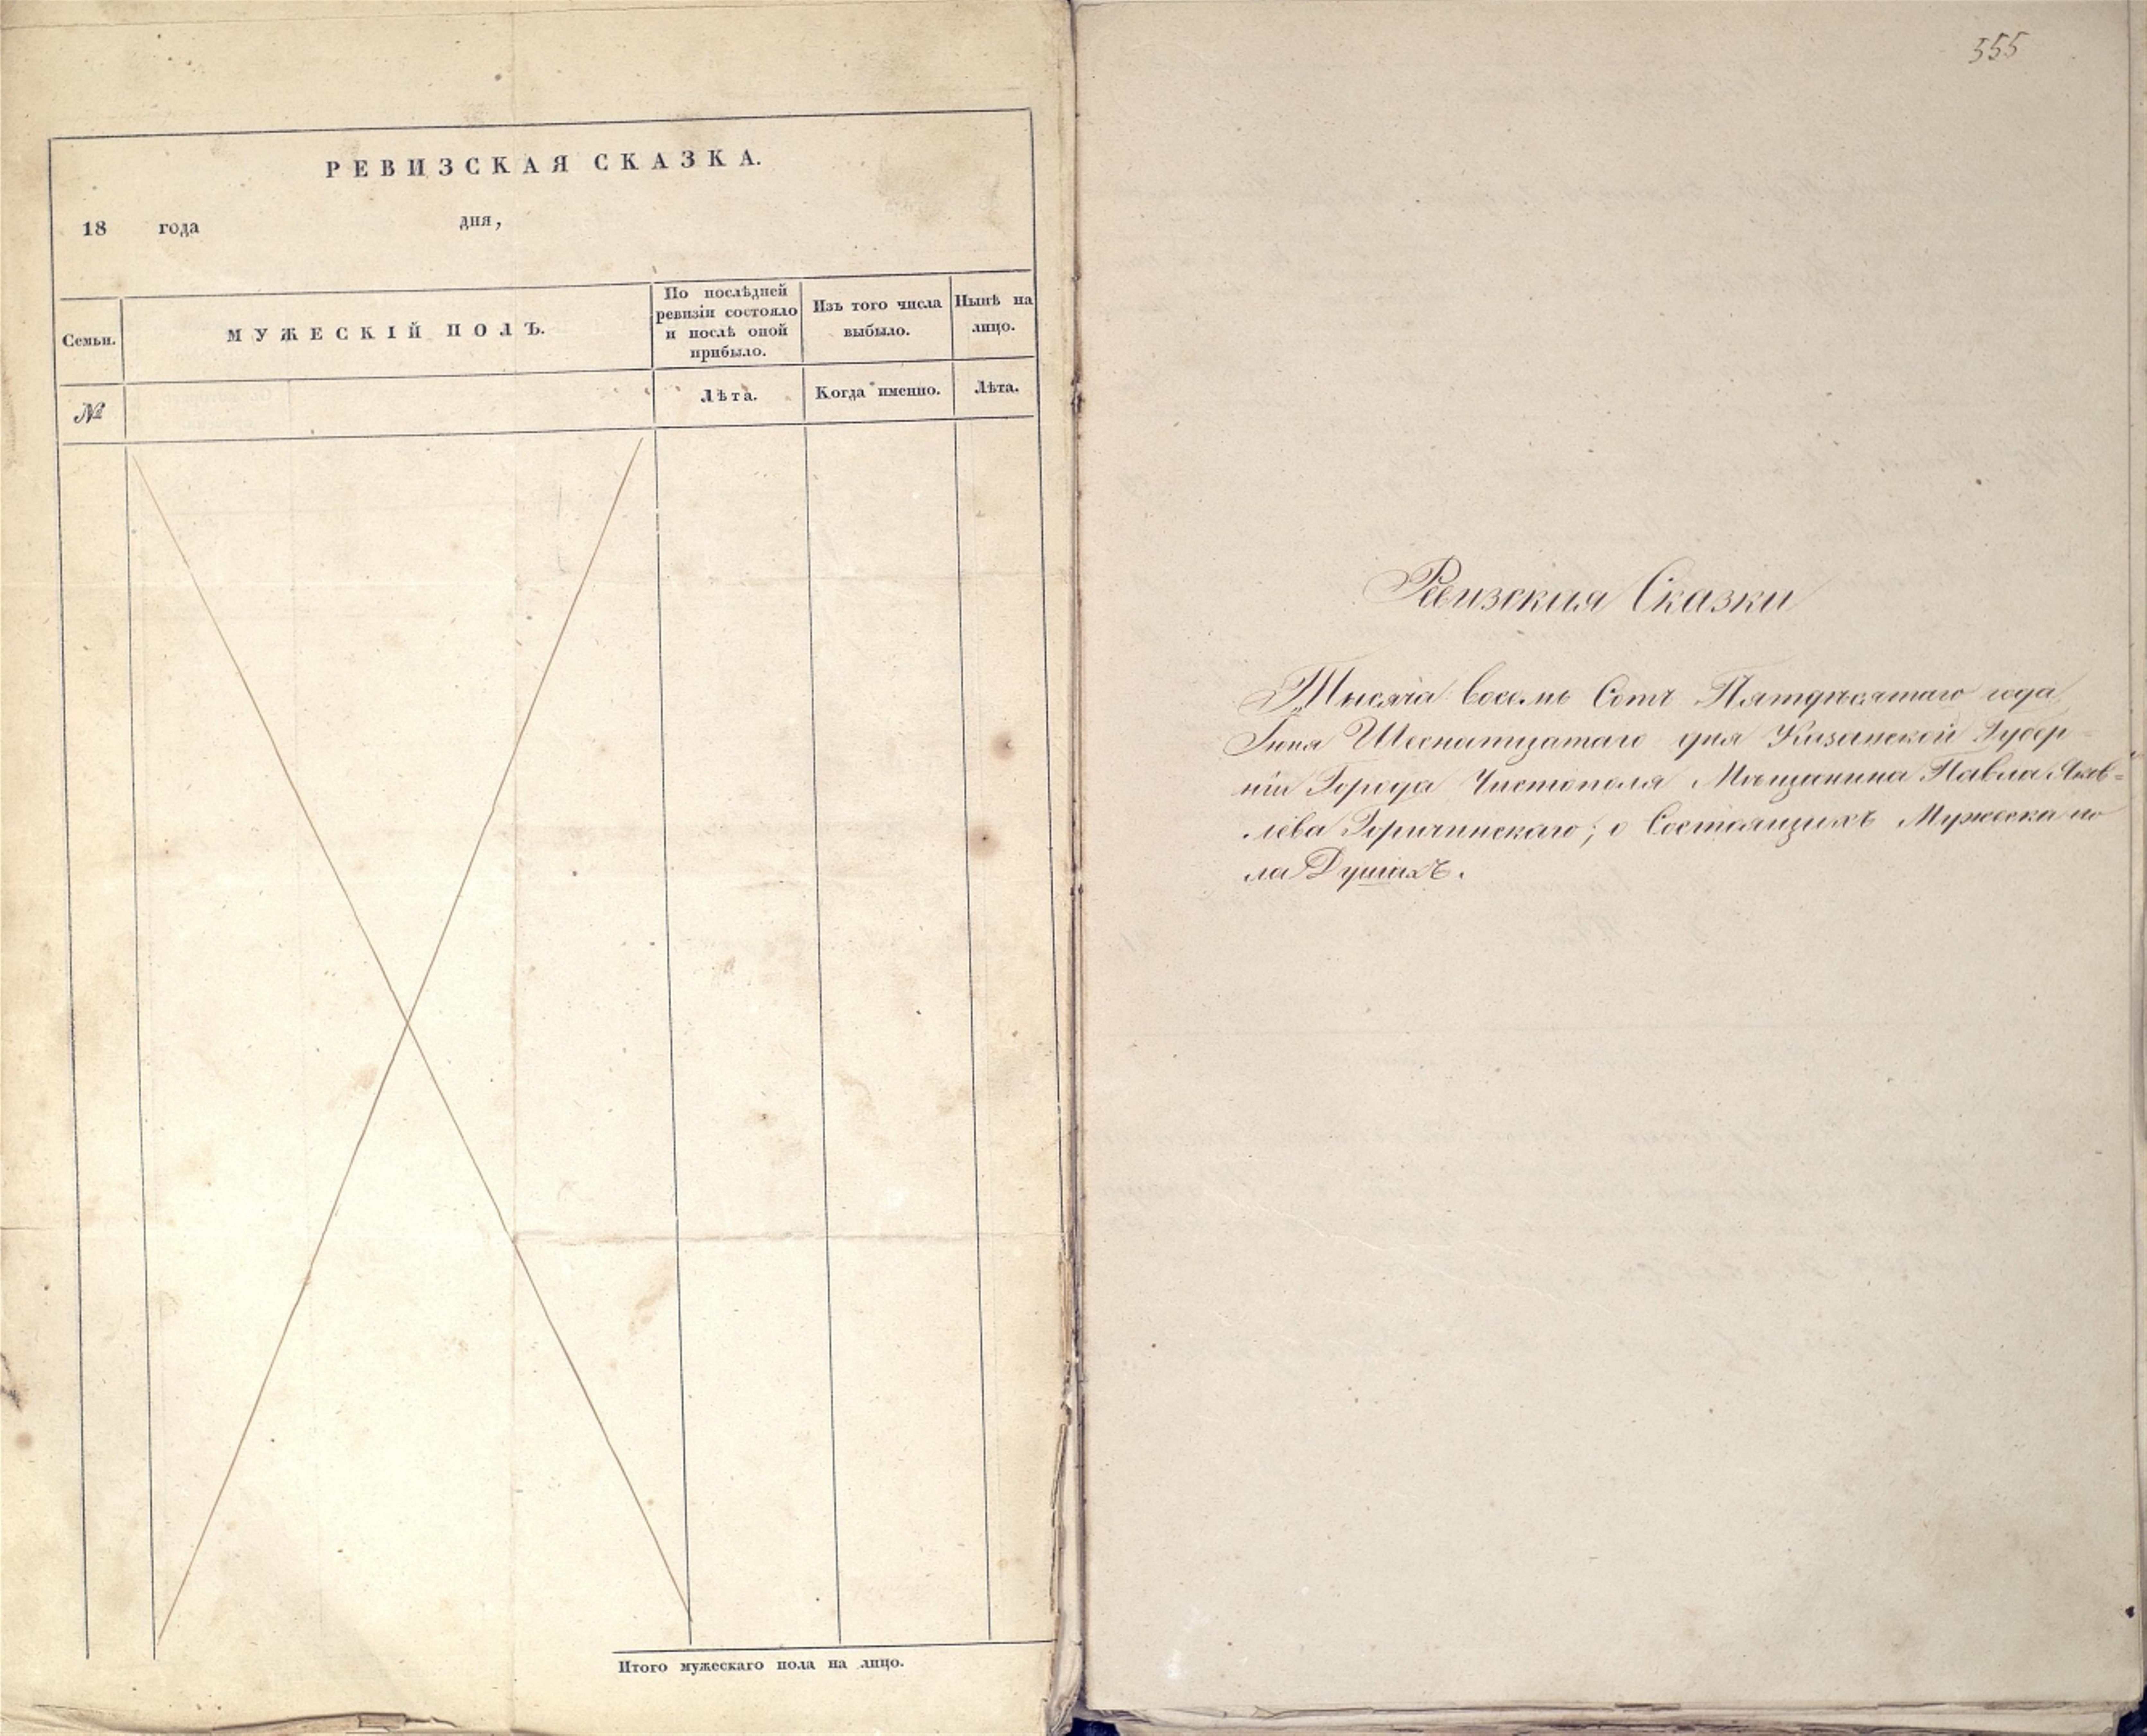 РЕВИЗСКАЯ СКАЗКА.
18 года дня,
Семьи.
МУЖЕСКІЙ ПОЛЪ.
По послѣдней
ревизіи состояло
и послѣ оной
прибыло.
Изъ того числа
выбыло.
Нынѣ на
лицо.
№
Лѣта.
Когда именно.
Лѣта.
Итого мужескаго пола на лицо.
555
Ревизския Сказки
Тысяча восемь Сотъ Пятдѣсятаго года,
Іюня Шеснатцатаго дня Казанской Губер-
ніи Города Чистополя Мѣщанина Павла Яков-
лева Горичинскаго; о Состоящихъ Мужеска по
ла Душахъ.